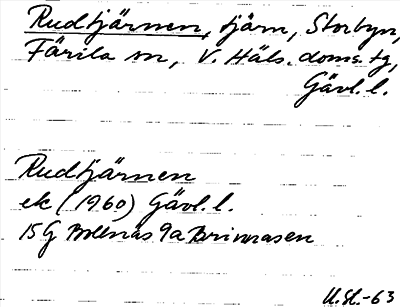 Rudtjärnen, tjärn, Storbyn,
Färila sn, V. Häls. doms. tg,
Gävl. l.
Rudtjärnen
ek (1960) Gävl. l.
15 G Bollnäs 9a Brinnåsen
U.St.-63